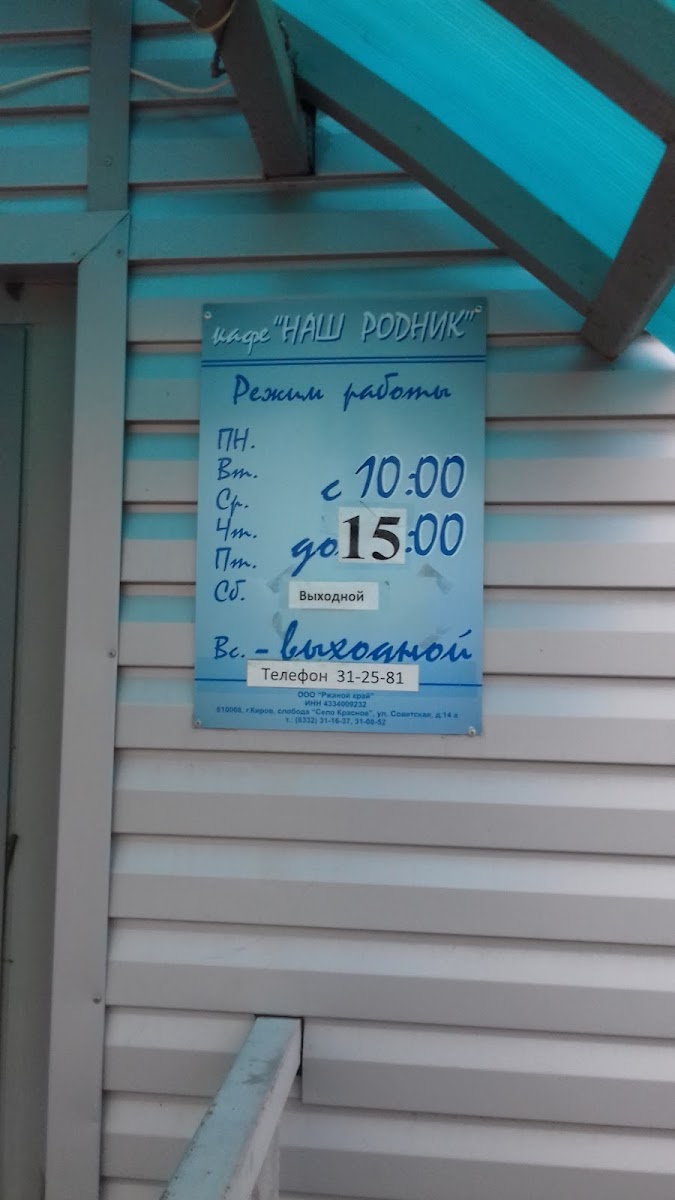 кафе "НАШ РОДНИК"
Режим работы
ПН.
Вт.
Ср.
Чт.
Пт.
Сб.
с 10:00
до 15:00
Выходной
Вс. - выходной
Телефон 31-25-81
ООО "Ржаной край"
ИНН 4334009232
610066, г.Киров, слобода "Село Красное", ул. Советская, д.14 а
т.: (8332) 31-16-37, 31-08-52